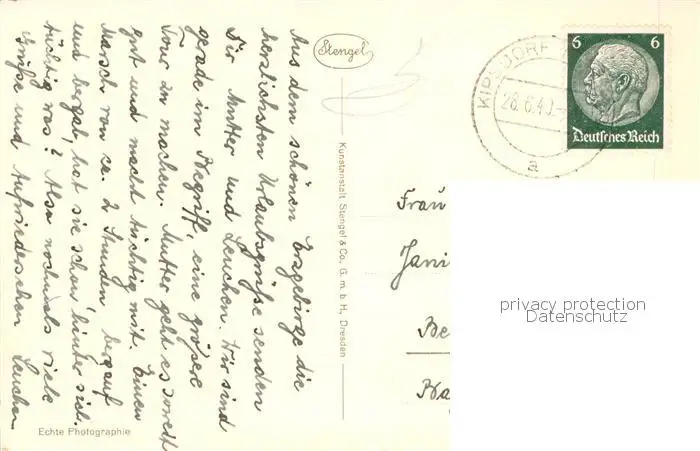 Aus dem schönen Erzgebirge die
herzlichsten Urlaubsgrüße senden
Dir Mutter und Lenchen. Wir sind
gerade im Begriff, eine größere
Tour zu machen. Mutter geht es soweit
gut und macht tüchtig mit. Einen
Marsch von ca. 2 Stunden bergauf
und bergab, hat sie schon hinter sich.
tüchtig was? Also nochmals viele
Grüße und Aufwiedersehen Lenchen
Echte Photographie
Stengel
Kunstanstalt Stengel & Co. G. m. b. H., Dresden
28.6.40.
a
6 6
Deutsches Reich
Frau
Be
privacy protection
Datenschutz